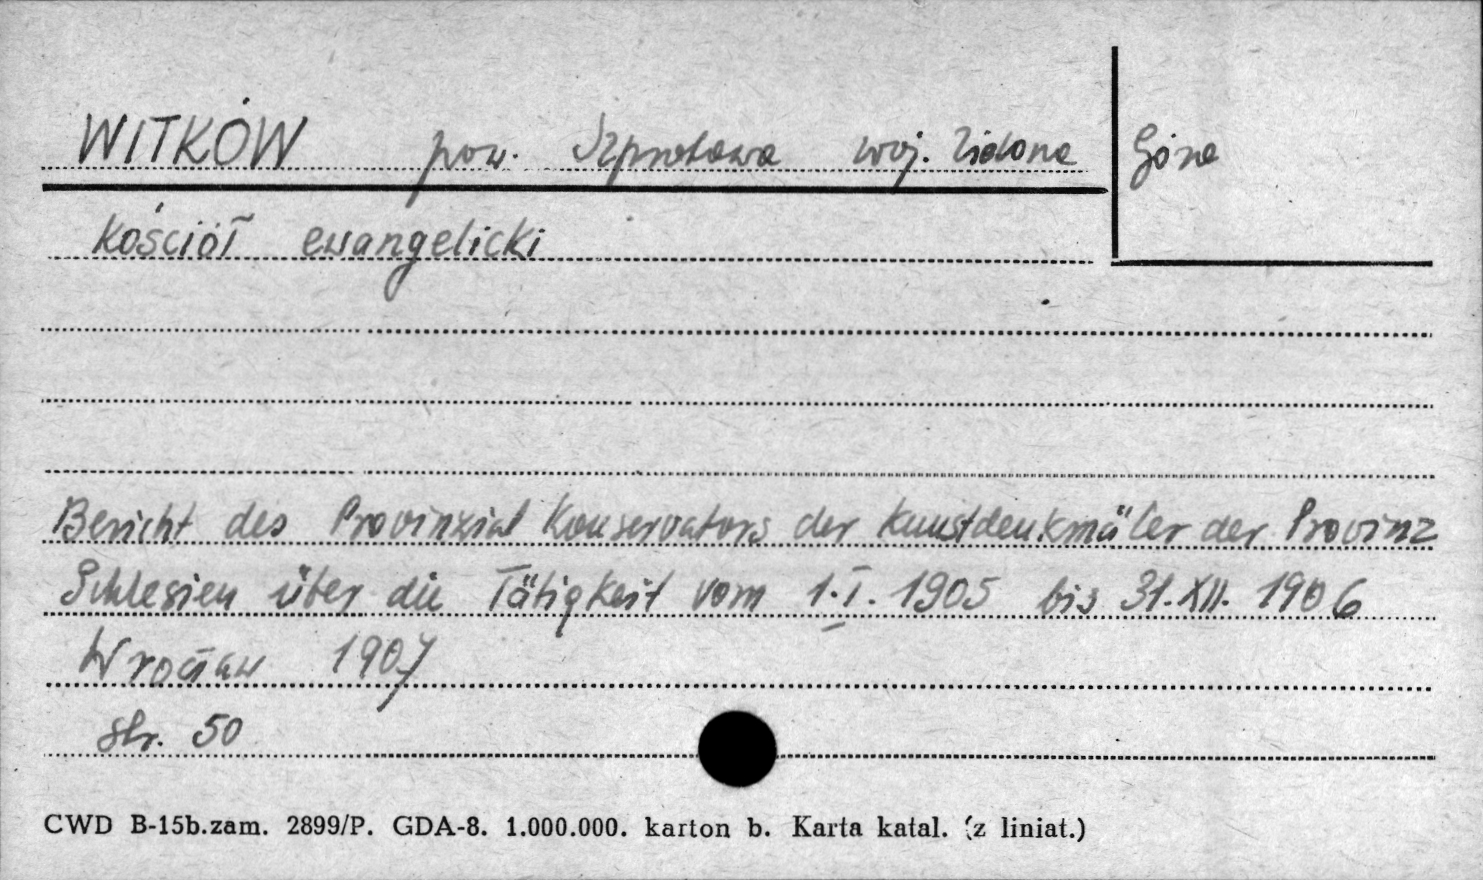 WITKÓW pow. Szprotawa woj. Zielona Góra
kościół ewangelicki
Bericht des Provinzial Konservators der Kunstdenkmäler der Provinz
Schlesien über die Tätigkeit vom 1.I.1905 bis 31.XII.1906
Wrocław 1907
str. 50
CWD B-15b.zam. 2899/P. GDA-8. 1.000.000. karton b. Karta katal. (z liniat.)